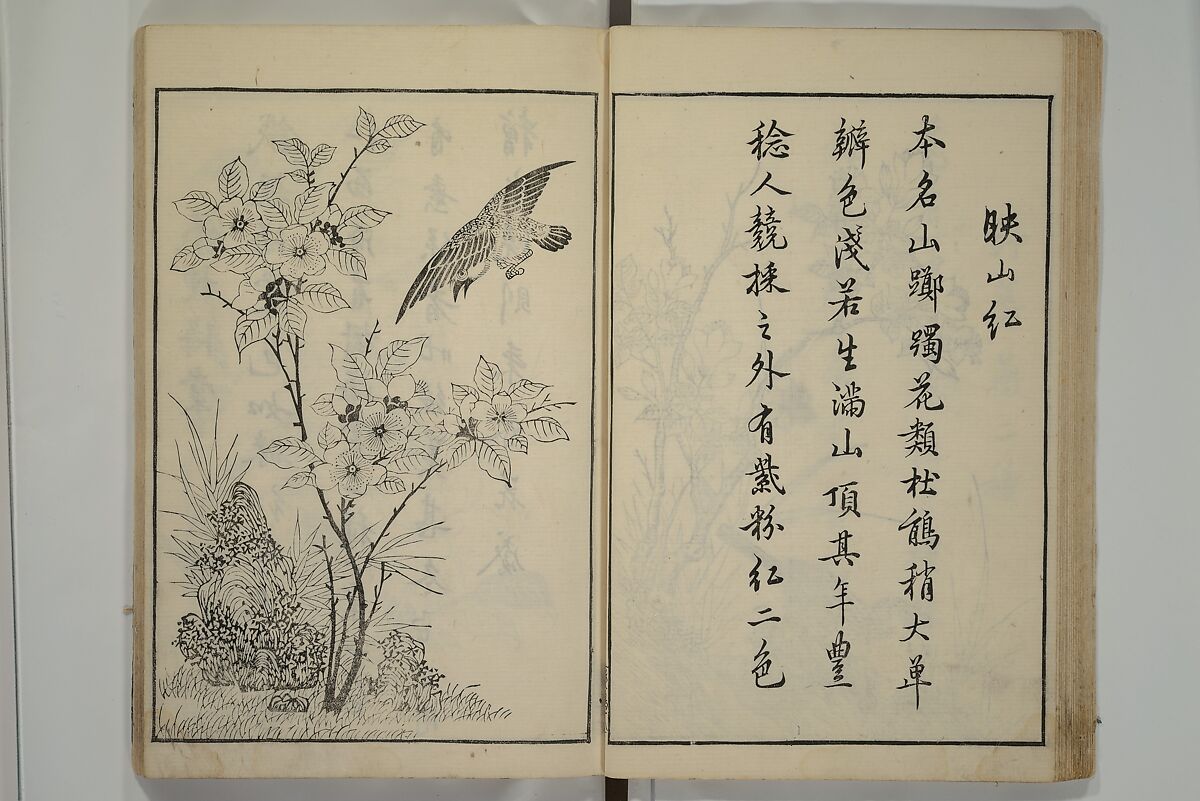 映山紅
本名山躑躅花類杜鵑稍大单
瓣色浅若生滿山頂其年豊
稔人競採之外有紫粉紅二色